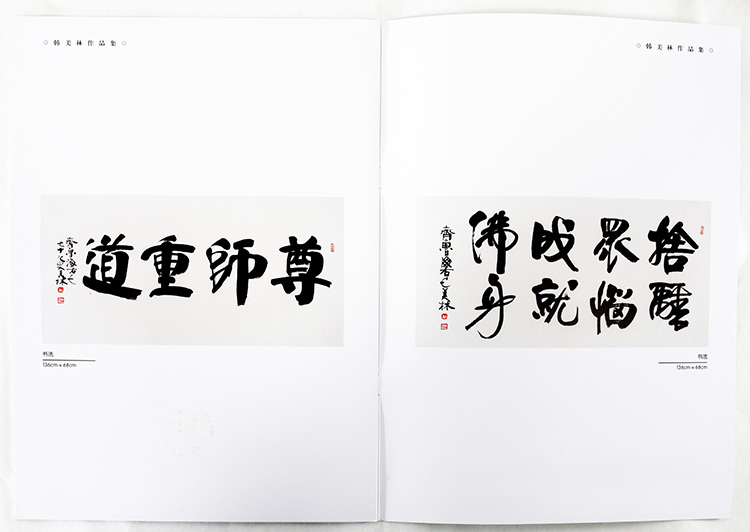 韩美林作品集
尊師重道
美林
书法
136cm × 68cm
韩美林作品集
捨離
眾惱
成就
佛身
美林
书法
136cm × 68cm